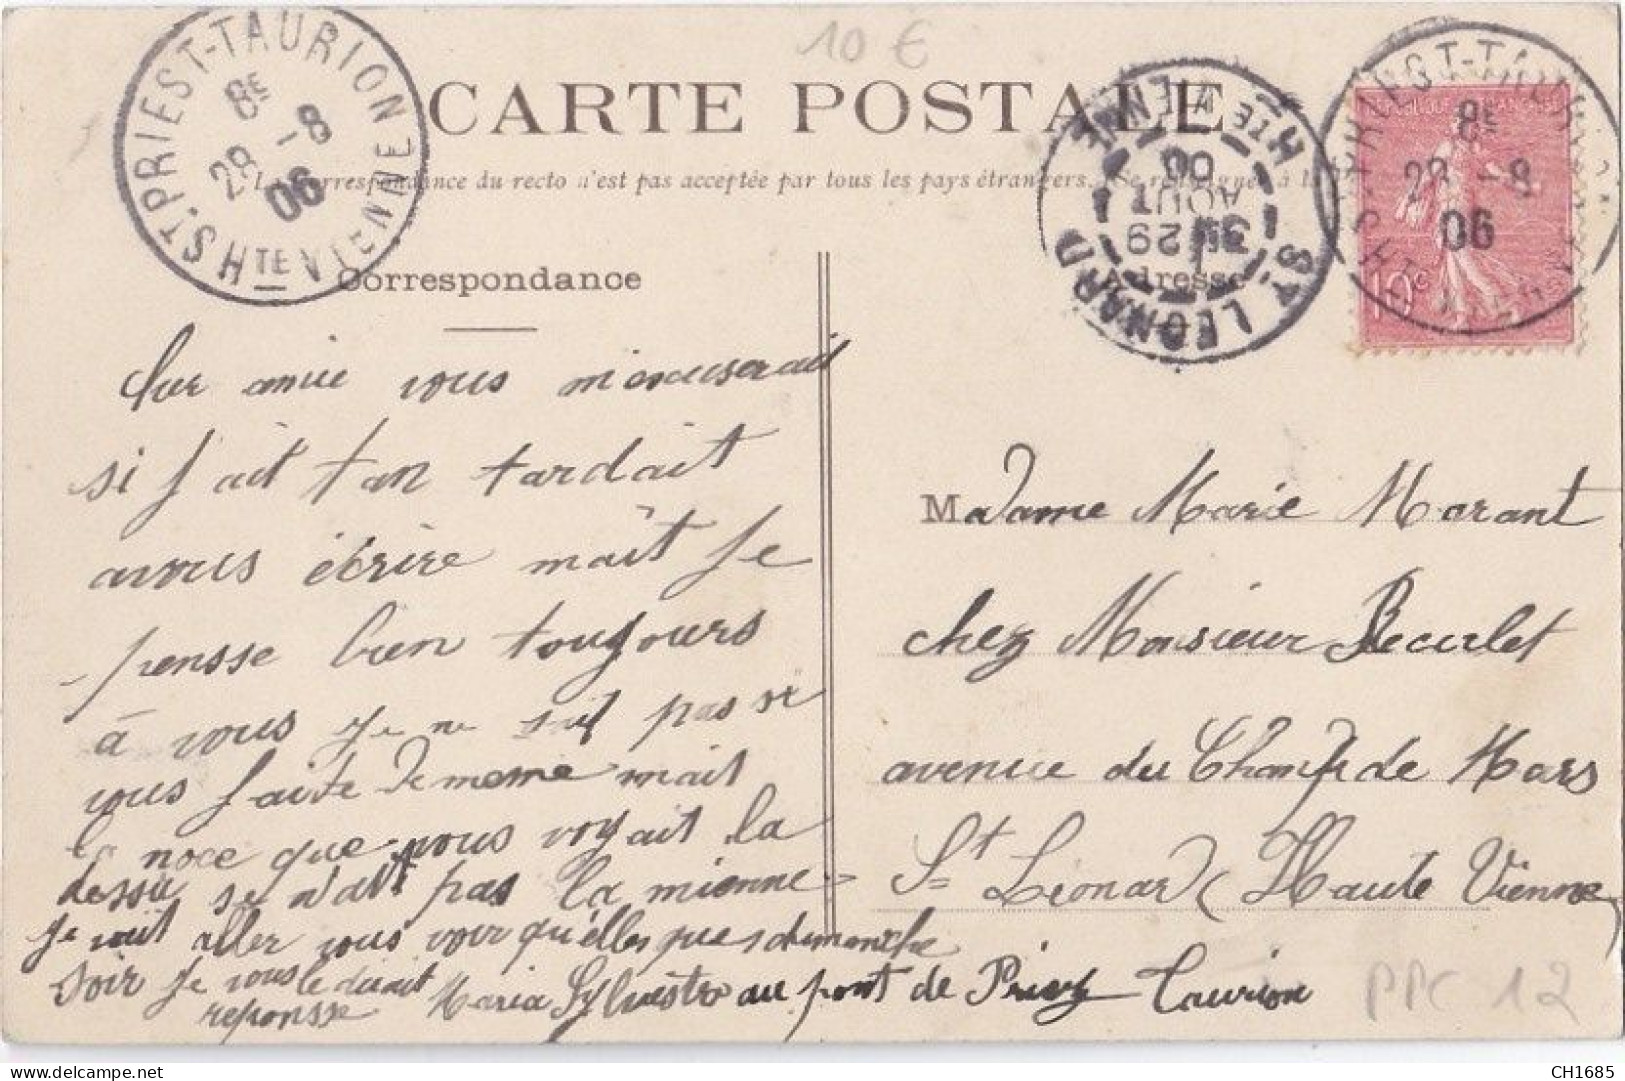 10 €
CARTE POSTALE
La Correspondance du recto n'est pas acceptée par tous les pays étrangers. (Se renseigner à la
ST PRIEST-TAURION
8E
28 -8
06
HTE VIENNE
ST LEONARD
HTE VIENNE
3E 29
AOUT
06
ST PRIEST-TAURION
8E
28 -8
06
HTE VIENNE
10
Correspondance
Adresse
Cher amie vous m'excuserait
si j'ait tan tardait
avous écrire mait je
pensse bien toujours
à vous je ne sait pas si
vous faite de meme mait
la noce que vous voyait la
dessu se n'ait pas la mienne
je vait aller vous voir quelles que dimanche
soir je vous le dirait
reponsse Maria Sylvestre au pont de Priez Taurion
Madame Marie Morant
chez Monsieur Beculet
avenue du Champ de Mars
St Léonard (Haute Vienne)
PPC 12
CH1685